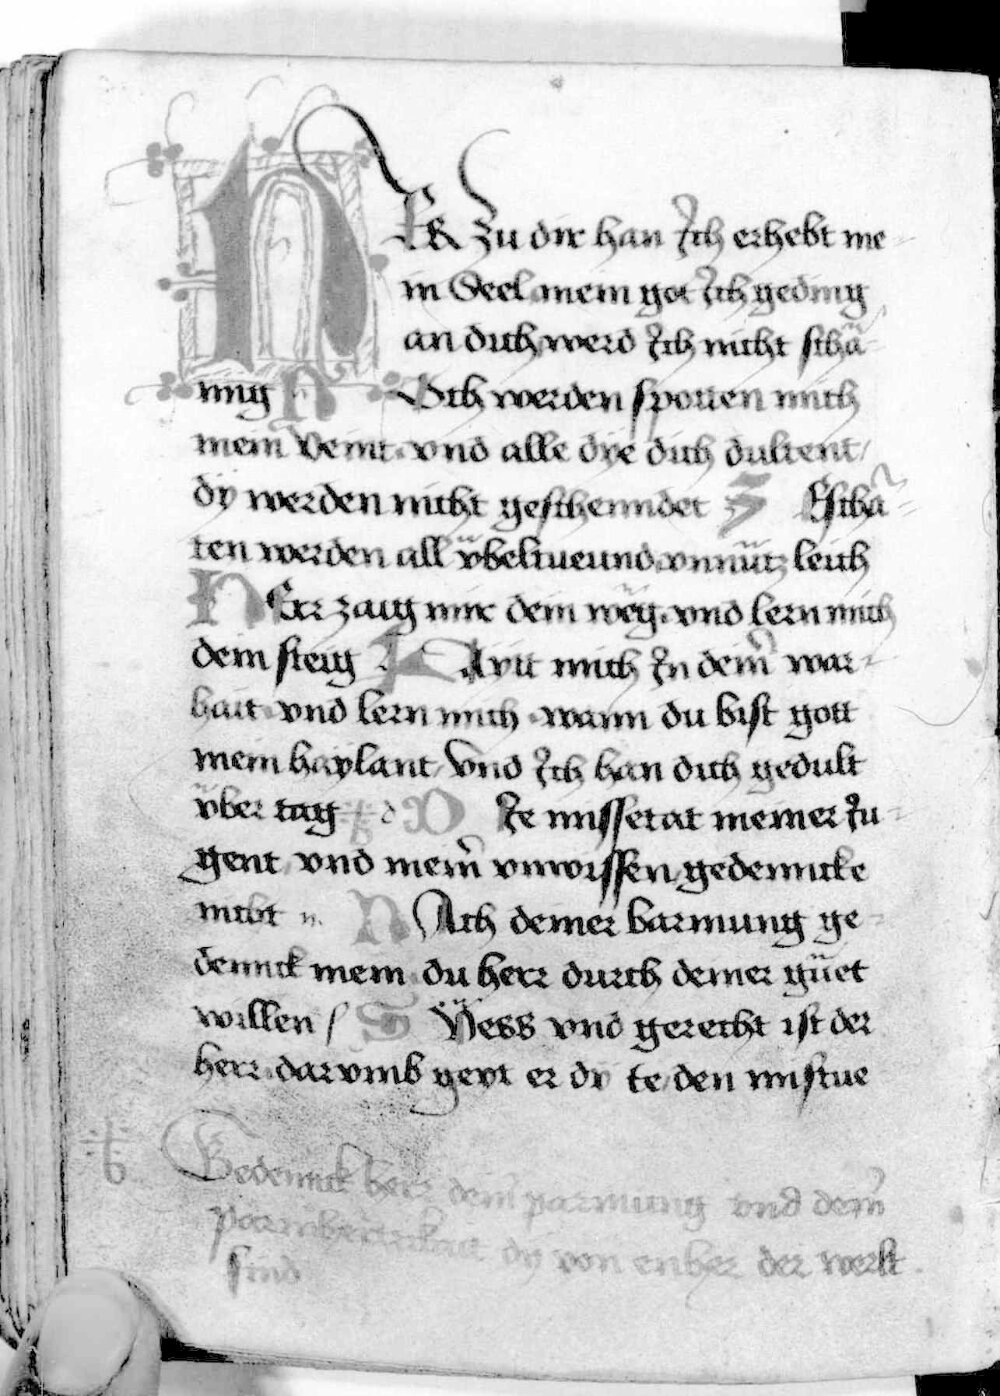 HER zu dir han Ich erhebt me-
in Seel mein got Ich geding
an dich werd Ich nicht schä-
mig Noch werden spotten mich
mein Veint vnd alle dÿe dich dultent
dÿ werden nicht geschenndet Z Escha-
ten werden all vbeltuеund vnnütz leich
HErr zaig mir dein weg vnd lern mich
dein steig LAytt mich In dein̄ war-
hait vnd lern mich wann du bist gott
mein haylant Vnd Ich han dich gedult
vber tag DIe missetat meiner Iu-
gent vnd mein̄ vnwissen gedenncke
nicht NAch deiner barmung ge-
dennck mein du herr durch deiner güet
willen SVess vnd gerecht ist der
herr darvmb geyt er dy te den misstue
Gedennck herr dein̄ parmung vnd dein̄
parmherczikait dÿ von enher der werlt
sind